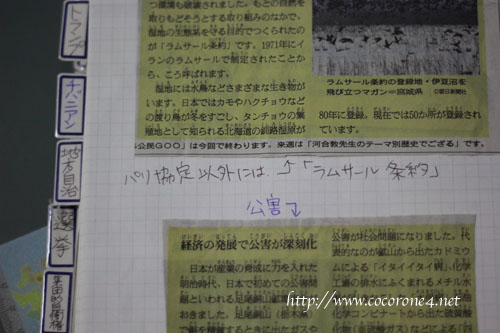 つ環境も破壊されました。もとの自然を
取りもどそうとする取り組みのなかで、
湿地の生態系を守る目的でつくられたの
が「ラムサール条約」です。1971年にイ
ランのラムサールで制定されたことか
ら、こう呼ばれます。
湿地には水鳥などさまざまな生き物が
います。日本ではカモやハクチョウなど
の渡り鳥が冬をすごし、タンチョウの繁
殖地として知られる北海道の釧路湿原が
ラムサール条約の登録地・伊豆沼を
飛び立つマガン=宮城県
©朝日新聞社
80年に登録。現在では50か所が登録され
ています。
公民GOO」は今回で終わります。来週は「河合敦先生のテーマ別歴史でござる」です。
パリ協定以外には…↑「ラムサール条約」
公害↓
経済の発展で公害が深刻化
日本が産業の育成に力を入れた
明治時代、日本で初めての公害問
題といわれる足尾銅山
おきました。
公害が社会問題になりました。代
表的なのが鉱山から出たカドミウ
ムによる「イタイイタイ病」、化学
工業の排水にふくまれるメチル水
化学コンビナートから出た
トマンテ
チバニアン
地方自治
選挙
集団的自衛権
http://www.cocorone4.net